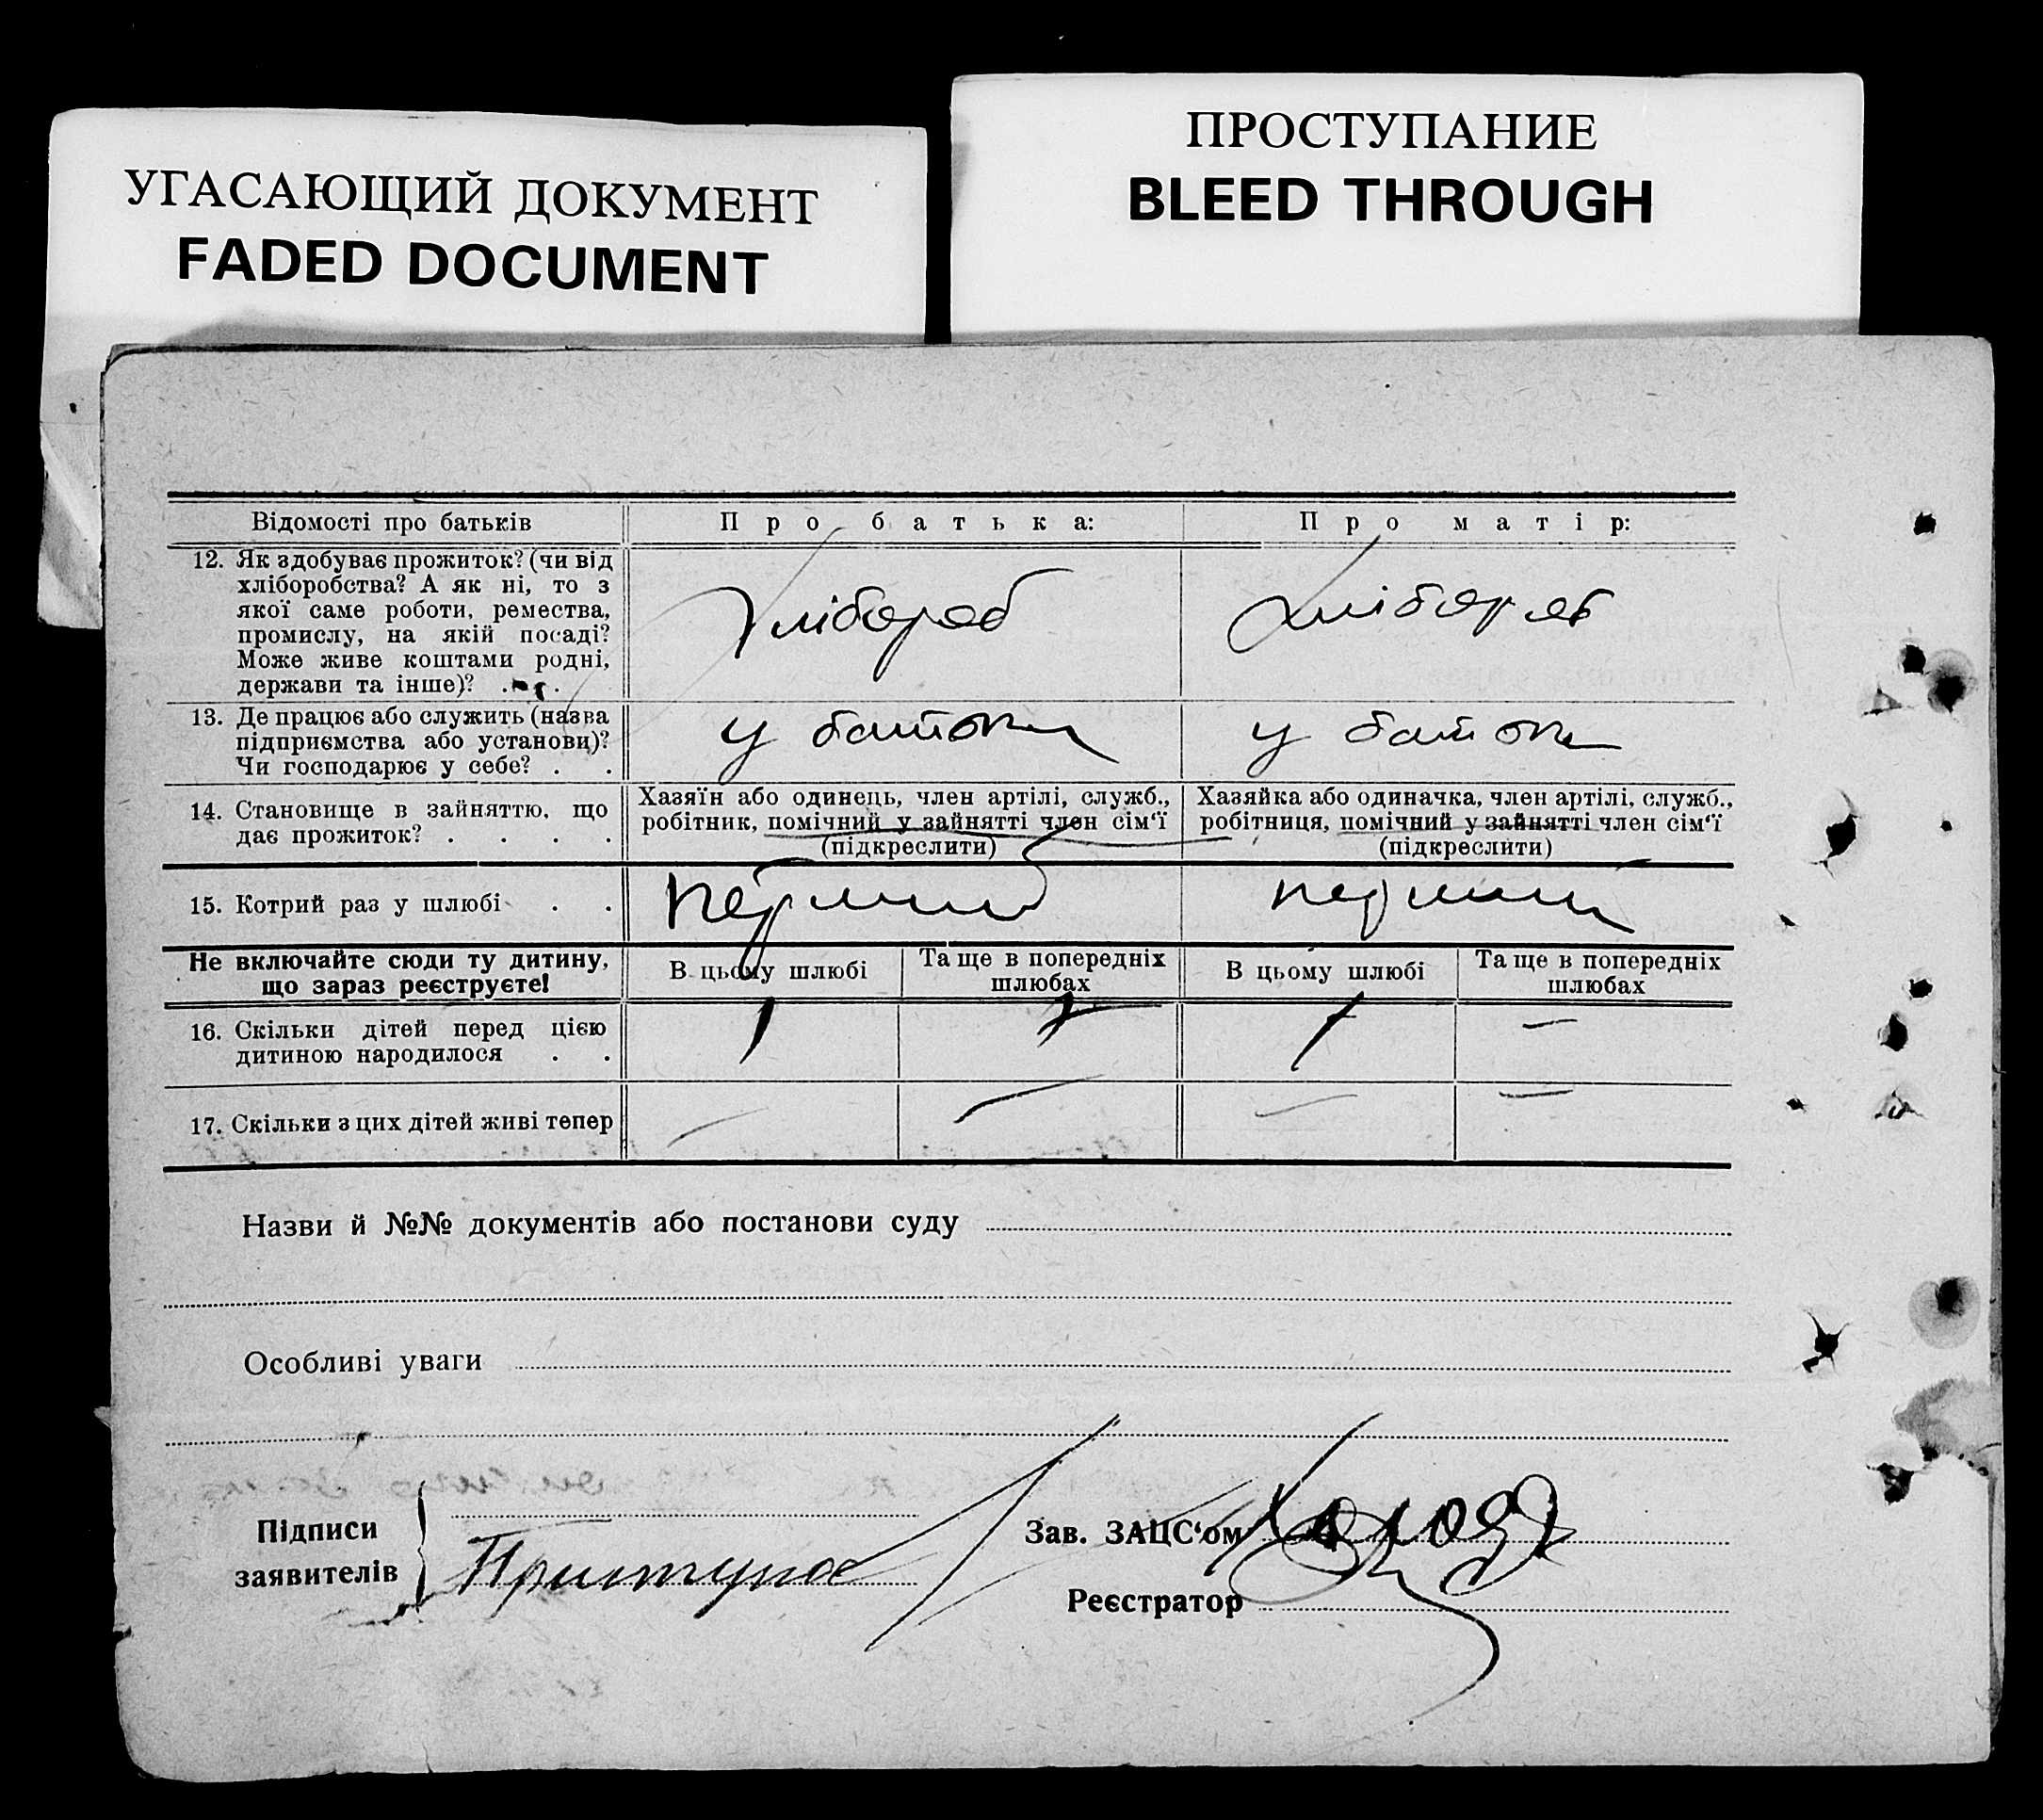 УГАСАЮЩИЙ ДОКУМЕНТ
FADED DOCUMENT
ПРОСТУПАНИЕ
BLEED THROUGH
Відомості про батьків
Про батька:
Про матір:
12. Як здобуває прожиток? (чи від
хліборобства? А як ні, то з
якої саме роботи, ремества,
промислу, на якій посаді?
Може живе коштами родні,
держави та інше)? . .
Хлібороб
Хлібороб
13. Де працює або служить (назва
підприємства або установи)?
Чи господарює у себе? . .
у батька
у батька
14. Становище в зайняттю, що
дає прожиток? . . . .
Хазяїн або одинець, член артілі, служб.,
робітник, помічний у зайнятті член сім‘ї
(підкреслити)
Хазяйка або одиначка, член артілі, служб.,
робітниця, помічний у зайнятті член сім‘ї
(підкреслити)
15. Котрий раз у шлюбі . .
перший
перший
Не включайте сюди ту дитину,
що зараз реєструєте!
В цьому шлюбі
Та ще в попередніх
шлюбах
В цьому шлюбі
Та ще в попередніх
шлюбах
16. Скільки дітей перед цією
дитиною народилося . .
1
1
—
17. Скільки з цих дітей живі тепер
—
—
—
—
Назви й №№ документів або постанови суду
Особливі уваги
Підписи
заявителів
Приступа
Зав. ЗАЦС‘ом
Реєстратор